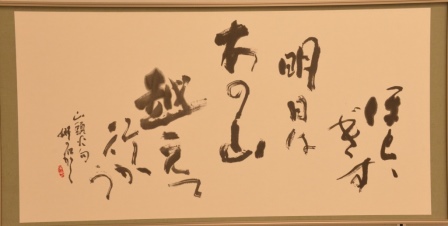 ほとゝ
ぎす
明日は
あの山
越えて
行かう
山頭火句